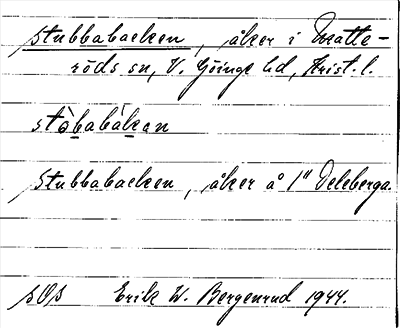 Stubbabacken, åker i Matte-
röds sn, V. Göinge hd, Krist. l.
stòbabàkan
Stubbabacken, åker å 1" Deleberga.
SOS Erik W. Bergenrud 1944.